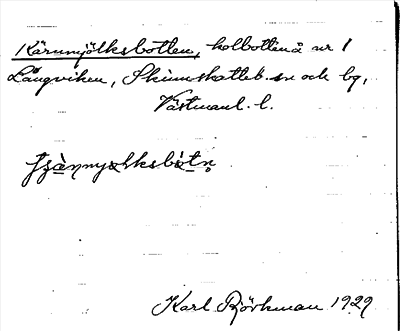 Kärnmjölksbotten, kolbotten å nr 1
Långviken, Skinnskatteb. sn och bg,
Västmanl. l.
Karl Björkman 1929